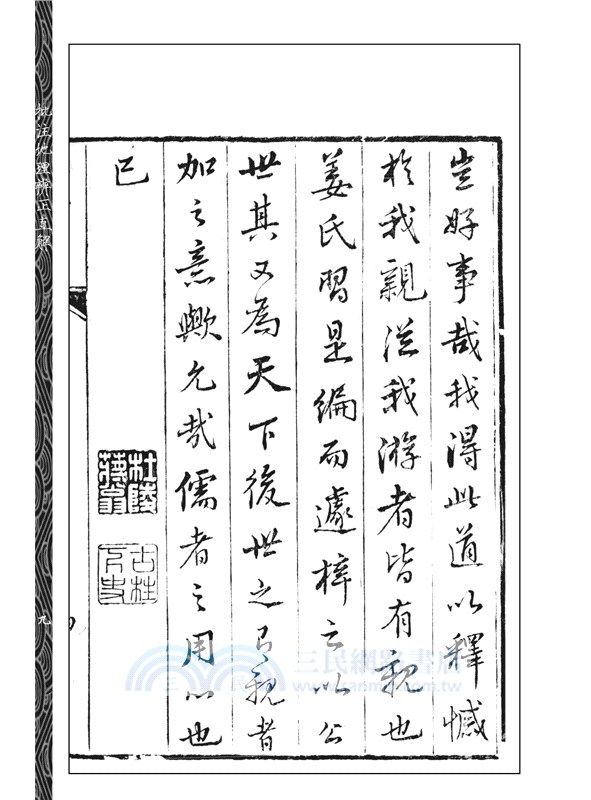 豈好事哉我得此道以釋憾
於我親從我游者皆有親也
姜氏習是編而遽梓之以公
世其又為天下後世之有親者
加之意歟允哉儒者之用心也
已
杜陵
蔣翁
古柱
下史
批注地理辨正直解
九
三民網路書店